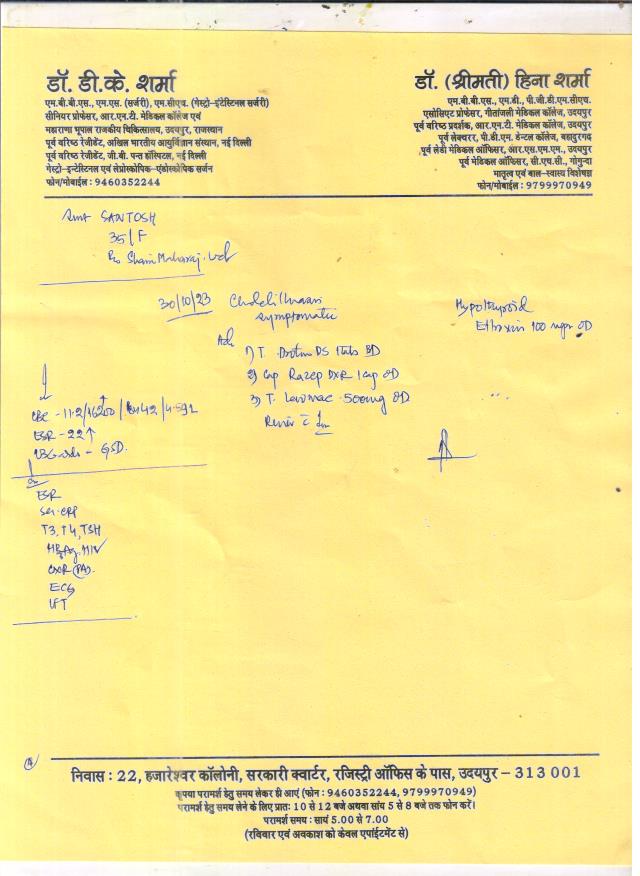 डॉ. डी.के. शर्मा
एम.बी.बी.एस., एम.एस. (सर्जरी), एम.सीएच. (गेस्ट्रो-इंटेस्टिनल सर्जरी)
सीनियर प्रोफेसर, आर.एन.टी. मेडिकल कॉलेज एवं
महाराणा भूपाल राजकीय चिकित्सालय, उदयपुर, राजस्थान
पूर्व वरिष्ठ रेजीडेंट, अखिल भारतीय आयुर्विज्ञान संस्थान, नई दिल्ली
पूर्व वरिष्ठ रेजीडेंट, जी.बी. पन्त हॉस्पिटल, नई दिल्ली
गेस्ट्रो-इन्टेस्टिनल एवं लेप्रोस्कोपिक-एंडोस्कोपिक सर्जन
फोन/मोबाईल : 9460352244
डॉ. (श्रीमती) हिना शर्मा
एम.बी.बी.एस., एम.डी., पी.जी.डी.एम.सीएच.
एसोसिएट प्रोफेसर, गीतांजली मेडिकल कॉलेज, उदयपुर
पूर्व वरिष्ठ प्रदर्शक, आर.एन.टी. मेडिकल कॉलेज, उदयपुर
पूर्व लेक्चरर, पी.डी.एम. डेन्टल कॉलेज, बहादुरगढ़
पूर्व लेडी मेडिकल ऑफिसर, आर.एस.एम.एम., उदयपुर
पूर्व मेडिकल ऑफिसर, सी.एच.सी., गोगुन्दा
मातृत्व एवं बाल-स्वास्थ्य विशेषज्ञ
फोन/मोबाईल : 9799970949
Smt SANTOSH
35/F
30/10/23
Symptomatic
Hypothyroid
Eltroxin 100 mgm OD
Adv
1) T. Drotin DS 1tab BD
2) Cap Razep DXR 1cap OD
3) T. Levomac 500mg OD
Review
CBC - 11.2/16200/
ESR - 22↑
- GSD.
ESR
Ser. CRP
T3, T4, TSH
HBsAg, HIV
CXR (PA).
ECG
LFT
निवास : 22, हजारेश्वर कॉलोनी, सरकारी क्वार्टर, रजिस्ट्री ऑफिस के पास, उदयपुर - 313 001
कृपया परामर्श हेतु समय लेकर ही आएं (फोन : 9460352244, 9799970949)
परामर्श हेतु समय लेने के लिए प्रातः 10 से 12 बजे अथवा सांय 5 से 8 बजे तक फोन करें।
परामर्श समय : सायं 5.00 से 7.00
(रविवार एवं अवकाश को केवल एपांईटमेंट से)